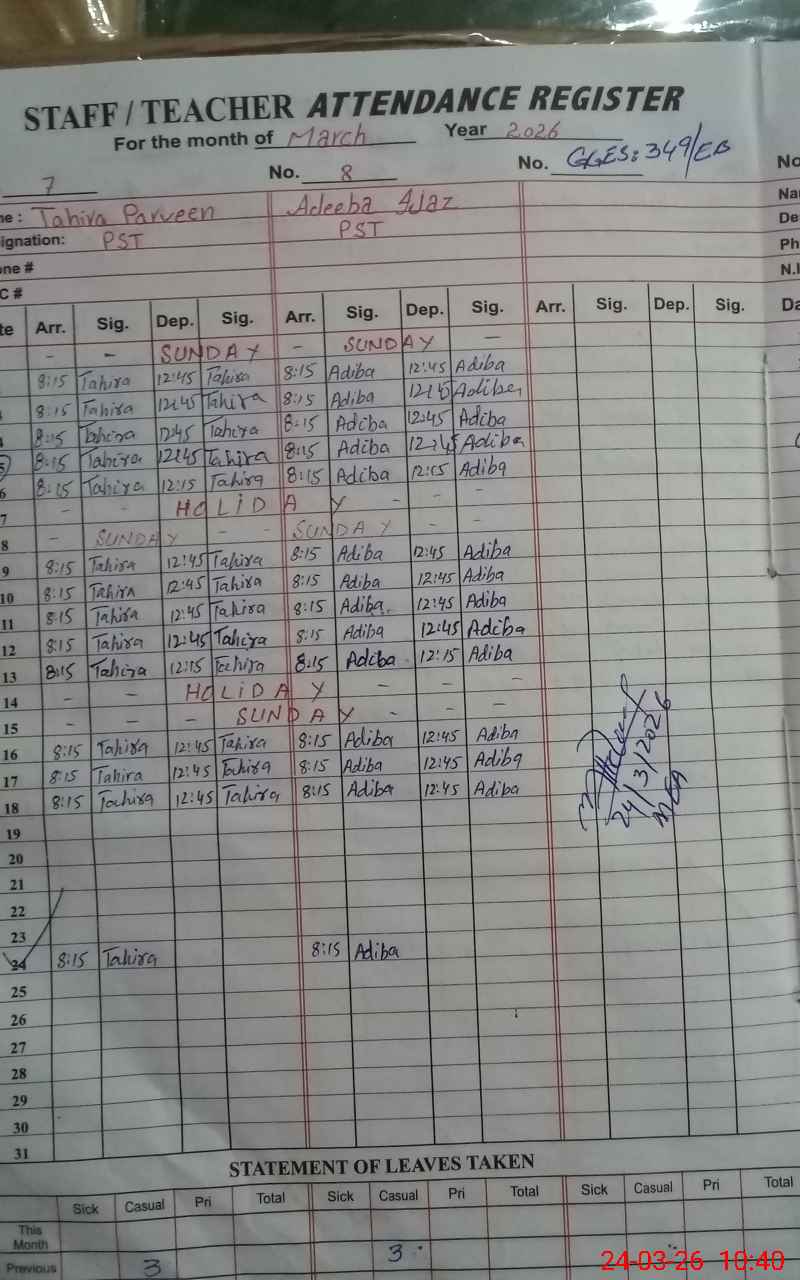 STAFF / TEACHER ATTENDANCE REGISTER
For the month of March Year 2026
7 No. 8 No. GGES: 349/EB No
me : Tahira Parveen Adeeba AJaz Na
signation: PST PST De
one # Ph
C # N.I
te Arr. Sig. Dep. Sig. Arr. Sig. Dep. Sig. Arr. Sig. Dep. Sig. Da
- - SUNDAY - SUNDAY -
8:15 Tahira 12:45 Tahira 8:15 Adiba 12:45 Adiba
8:15 Tahira 12:45 Tahira 8:15 Adiba Adiba
4 8:15 Tahira 12:45 Tahira 8:15 Adiba 12:45 Adiba
5 8:15 Tahira 12:45 Tahira 8:15 Adiba 12:45 Adiba
6 8:15 Tahira 12:15 Tahira 8:15 Adiba Adiba
7 - - HOLIDAY - - -
8 - SUNDAY - - SUNDAY - -
9 8:15 Tahira 12:45 Tahira 8:15 Adiba 12:45 Adiba
10 8:15 Tahira 12:45 Tahira 8:15 Adiba 12:45 Adiba
11 8:15 Tahira 12:45 Tahira 8:15 Adiba. 12:45 Adiba
12 8:15 Tahira 12:45 Tahira 8:15 Adiba 12:45 Adiba
13 8:15 Tahira 12:15 Tahira 8:15 Adiba 12:15 Adiba
14 - - HOLIDAY - - -
15 - - - SUNDAY - - -
16 8:15 Tahira 12:45 Tahira 8:15 Adiba 12:45 Adiba
17 8:15 Tahira 12:45 Tahira 8:15 Adiba 12:45 Adiba
18 8:15 Tahira 12:45 Tahira 8:15 Adiba 12:45 Adiba
24/3/2026
MEA
19
20
21
22
23
24 8:15 Tahira 8:15 Adiba
25
26
27
28
29
30
31
STATEMENT OF LEAVES TAKEN
Sick Casual Pri Total Sick Casual Pri Total Sick Casual Pri Total
This
Month
Previous 3 3
24-03-26 10:40